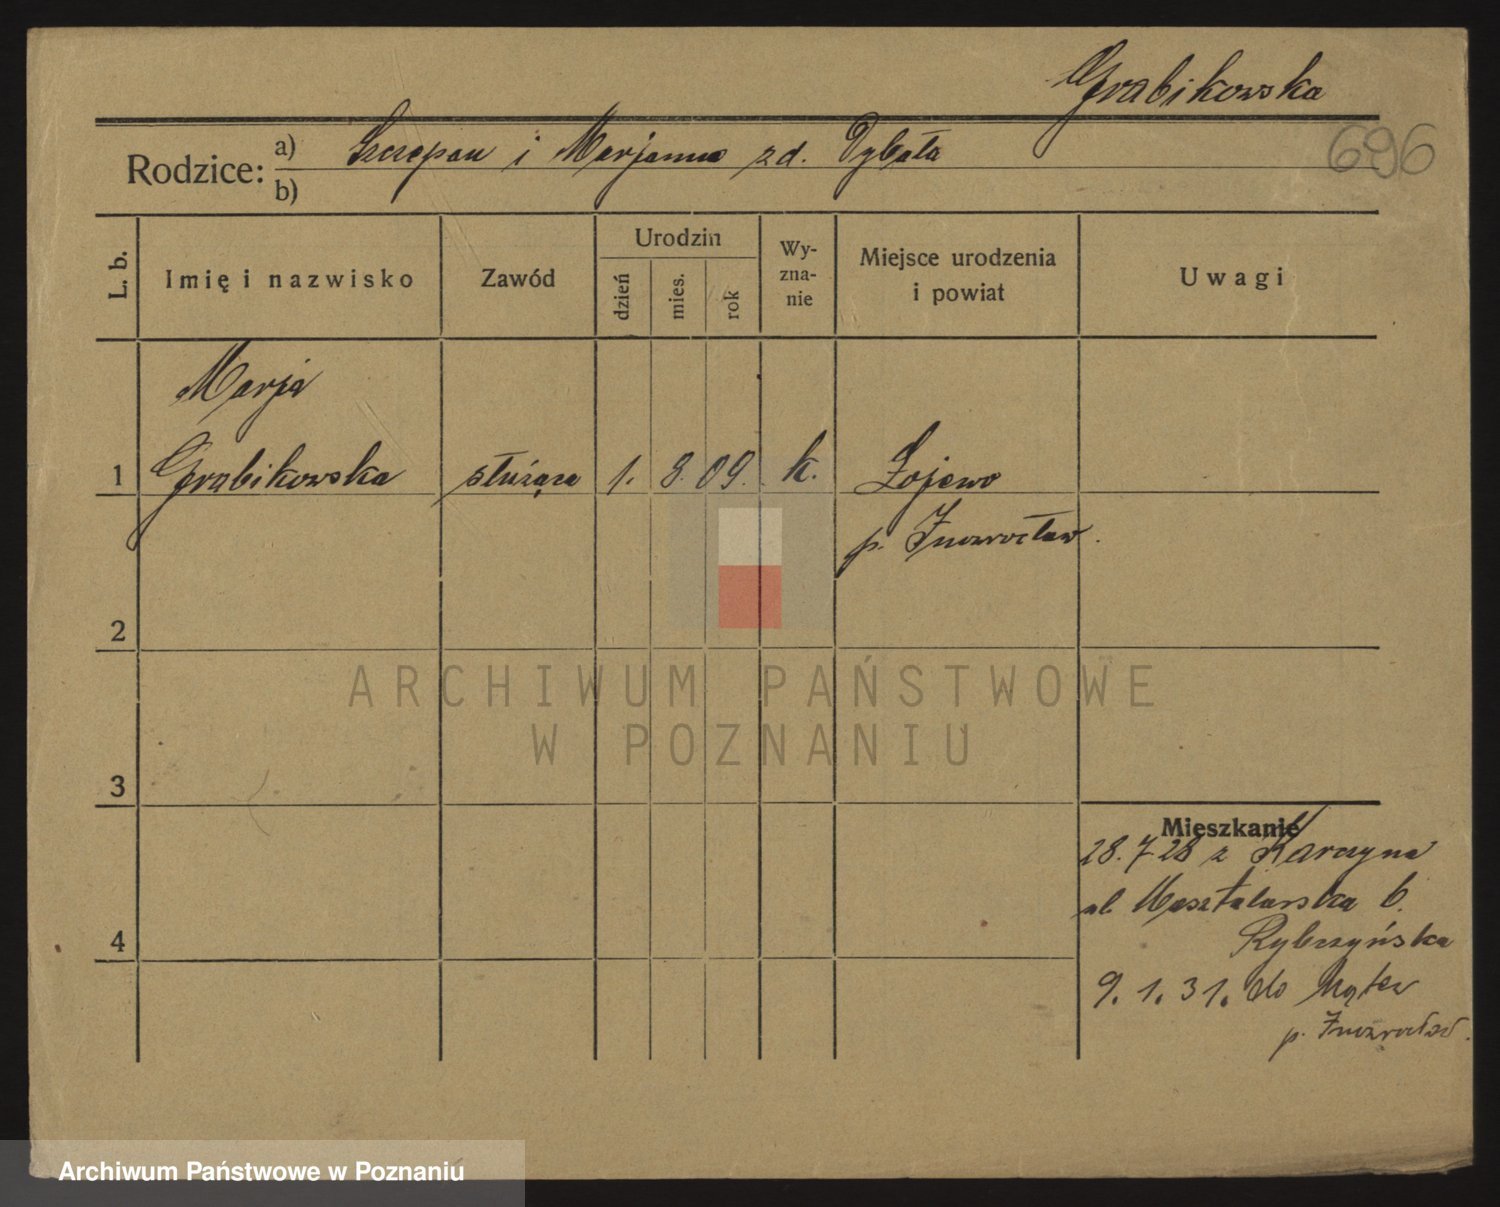 Grabikowska
696
Rodzice: a) Szczepan i Marjanna z d. Dybała
b)
L. b.
Imię i nazwisko
Zawód
Urodzin
dzień
mies.
rok
Wy-
zna-
nie
Miejsce urodzenia
i powiat
Uwagi
Marja
1 Grabikowska służąca 1. 8. 09. k. Łojewo
p. Inowrocław.
2
3
4
Mieszkanie
28. 7 28 z Karczyna
ul. Masztalarska 6.
Rybczyńska
9. 1. 31. do Mątew
p. Inowrocław.
ARCHIWUM PAŃSTWOWE
W POZNANIU
Archiwum Państwowe w Poznaniu